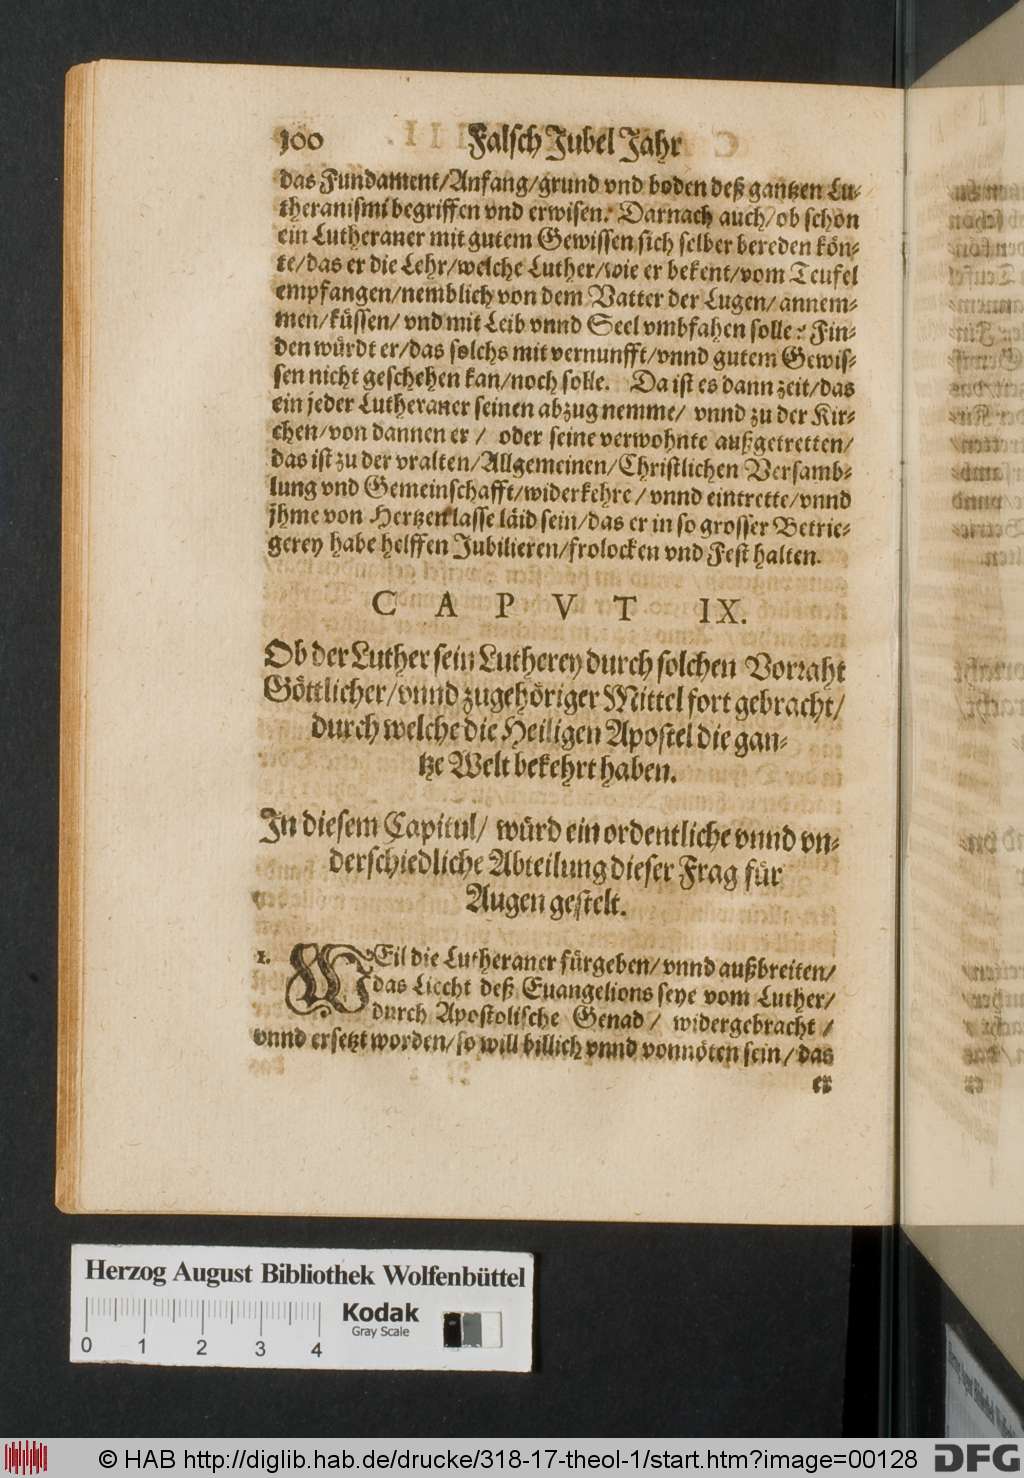 100 Falsch Jubel Jahr
das Fundament/Anfang/grund vnd boden deß gantzen Lu-
theranismi begriffen vnd erwisen. Darnach auch/ob schon
ein Lutheraner mit gutem Gewissen sich selber bereden kön-
te/das er die Lehr/welche Luther/wie er bekent/vom Teufel
empfangen/nemblich von dem Vatter der Lugen/annem-
men/küssen/ vnd mit Leib vnnd Seel vmbfahen solle? Fin-
den würdt er/das solchs mit vernunfft/vnnd gutem Gewis-
sen nicht geschehen kan/noch solle. Da ist es dann zeit/das
ein jeder Lutheraner seinen abzug nemme/ vnnd zu der Kir-
chen/von dannen er / oder seine verwohnte außgetretten/
das ist zu der vralten/Allgemeinen/Christlichen Versamb-
lung vnd Gemeinschafft/widerkehre/vnnd eintrette/vnnd
jhme von Hertzen lasse läid sein/das er in so grosser Betrie-
gerey habe helffen Jubilieren/frolocken vnd Fest halten.
CAPVT IX.
Ob der Luther sein Lutherey durch solchen Vorraht
Göttlicher/vnnd zugehöriger Mittel fort gebracht/
durch welche die Heiligen Apostel die gan-
tze Welt bekehrt haben.
In diesem Capitul/ würd ein ordentliche vnnd vn-
derschiedliche Abteilung dieser Frag für
Augen gestelt.
1. WEil die Lutheraner fürgeben/vnnd außbreiten/
das Liecht deß Euangelions seye vom Luther/
durch Apostolische Genad/ widergebracht/
vnnd ersetzt worden/so will billich vnnd vonnöten sein/das
er
Herzog August Bibliothek Wolfenbüttel
0 1 2 3 4
Kodak
Gray Scale
© HAB http://diglib.hab.de/drucke/318-17-theol-1/start.htm?image=00128
DFG